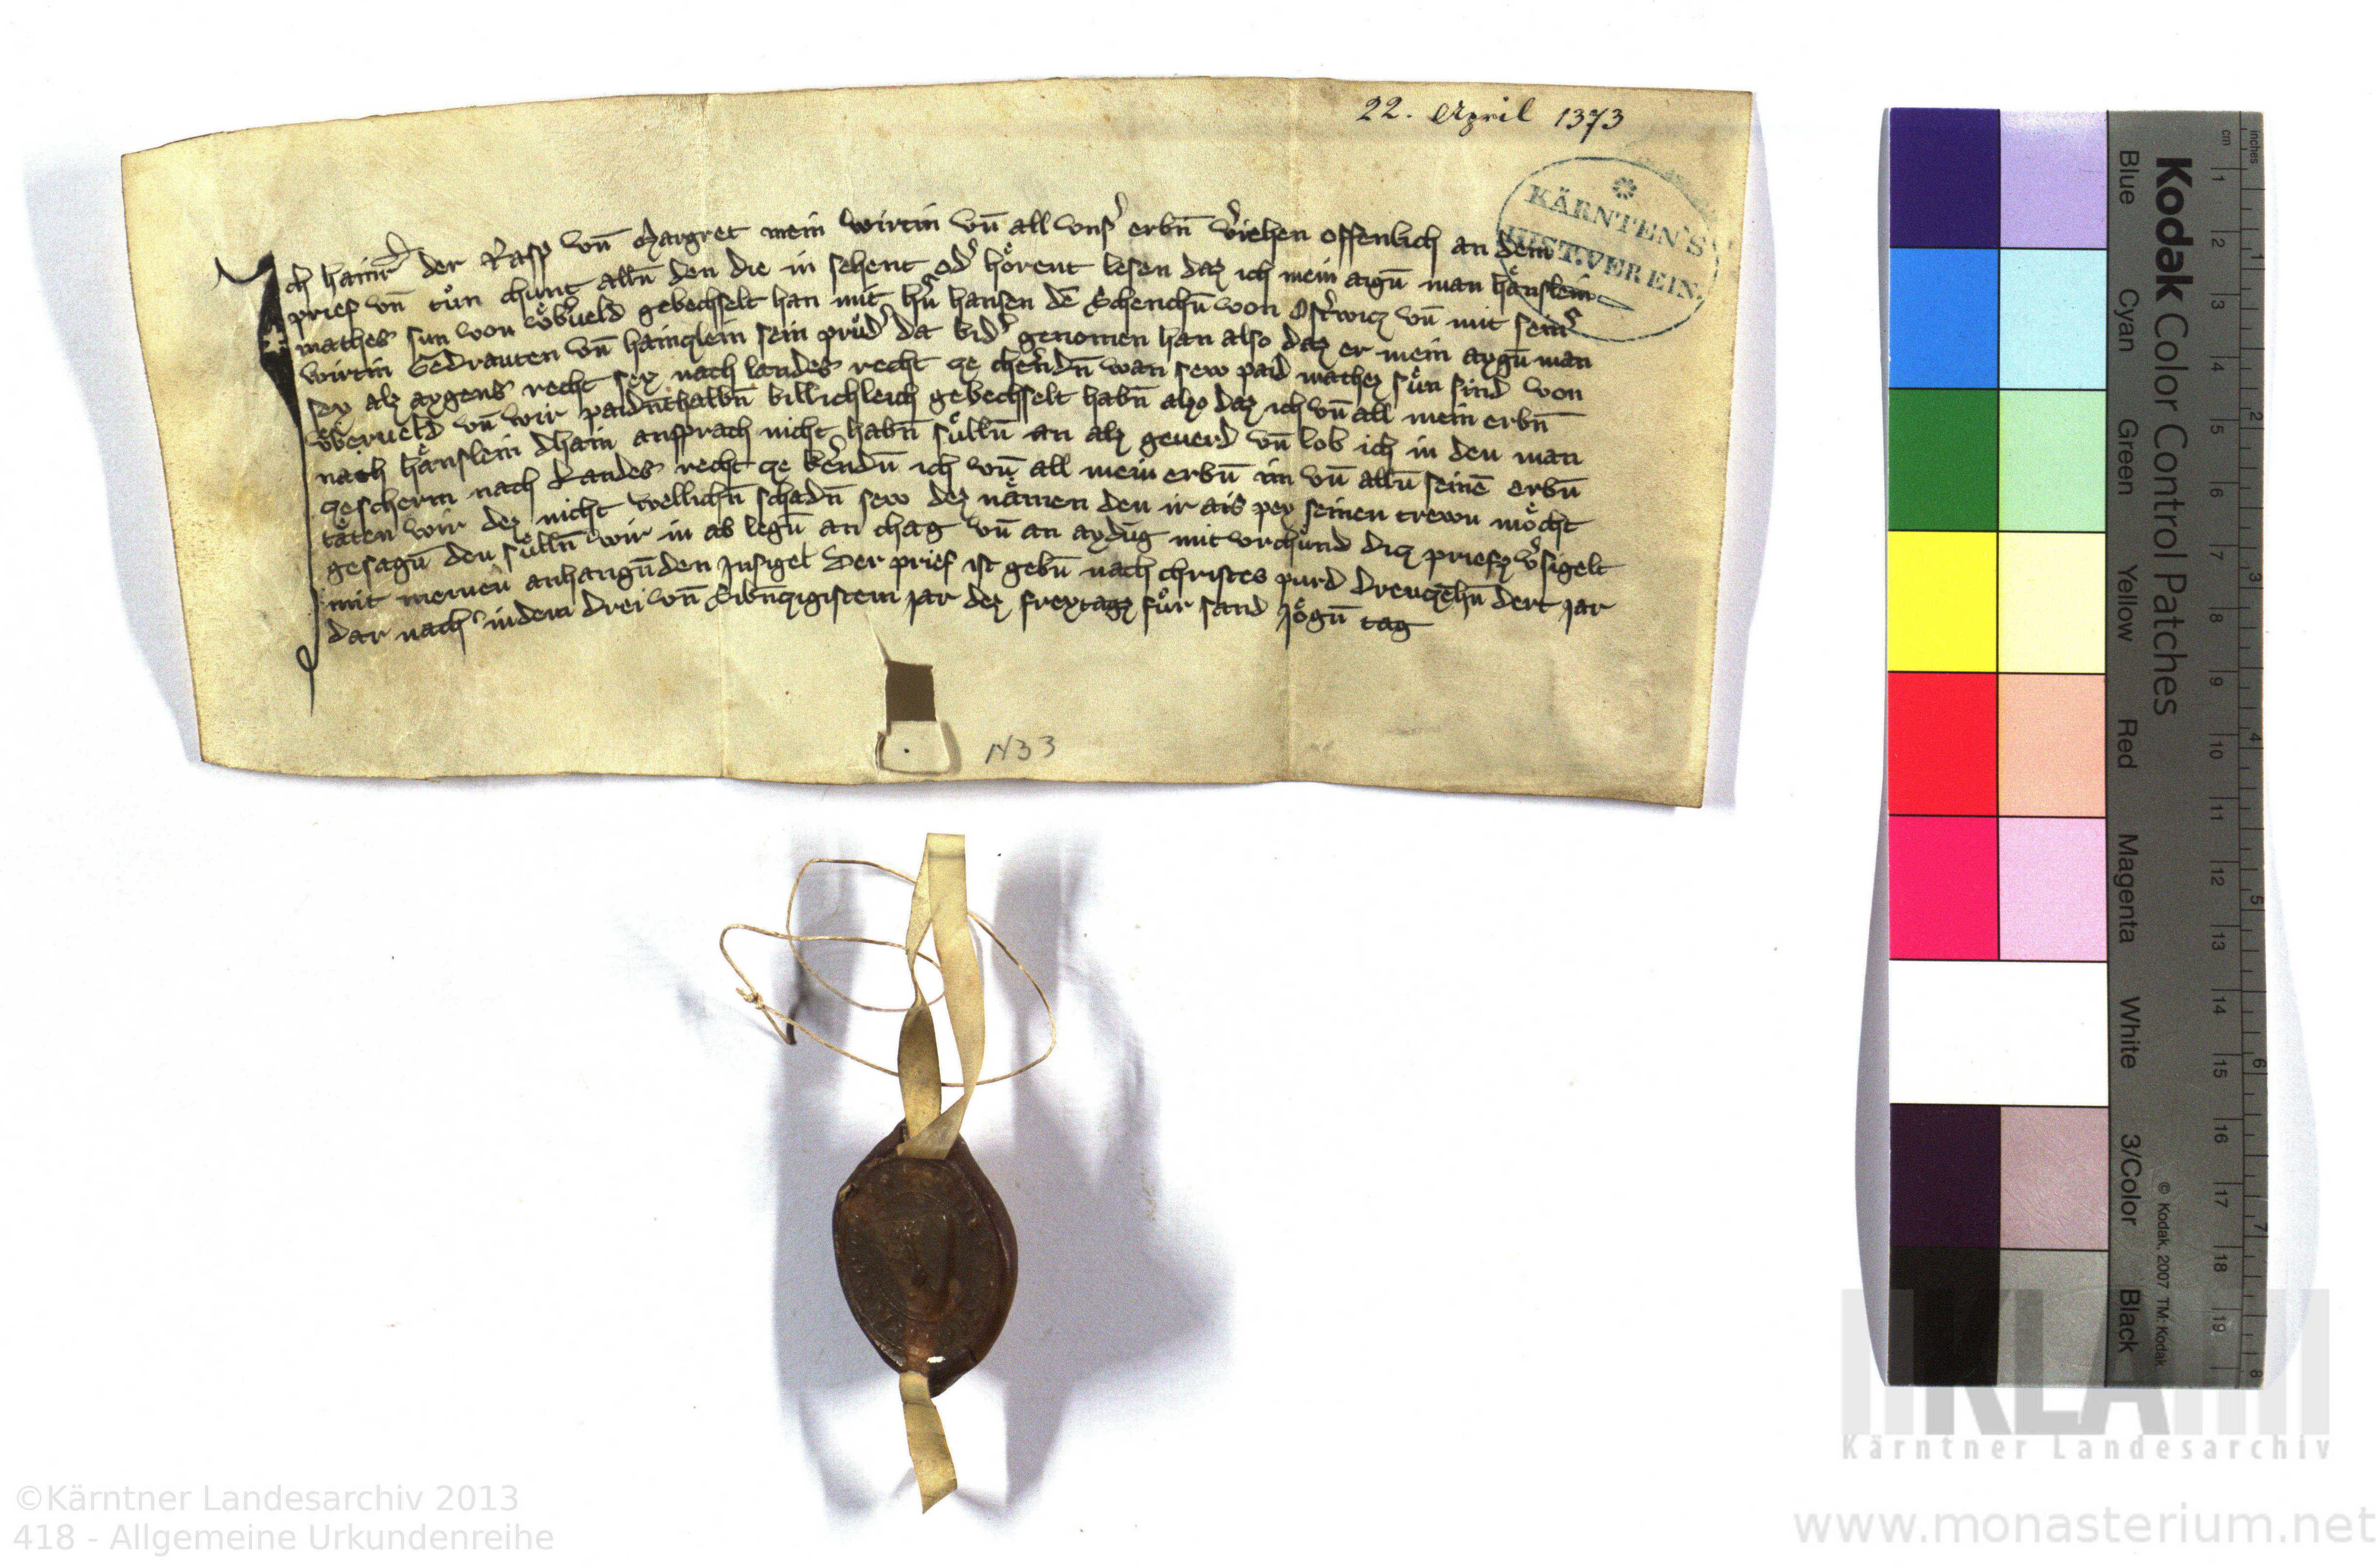 22. April 1373
KÄRNTEN'S
HIST. VEREIN.
Ich hainr̄ der Rasp vn̄ Margret mein wirtin vn̄ all vnsˀ erbn̄ vˀiehen offenlich an dem
prief vn̄ tuͤn chunt alln̄ den die in sehent odˀ hoͤrent lesen daz ich mein aign̄ man haͤnslein
mathes sun von voͤbˀueld gebechsselt han mit hˀn̄ hansen dē Schenchn̄ von Ostˀwicz vn̄ mit seinˀ
wirtin Gedrauten vn̄ hainczlein sein pruͤdˀ da bidˀ genomen han also daz er mein aygn̄ man
sey alz aygens recht sey nach landes recht ze chernˀdn̄ wan sew paid mathez suͤn sind von
voͤberueld vn̄ wir paidn̄thalbn̄ billichleich gebechsselt habn̄ alzo daz ich vn̄ all mein erbn̄
nach haͤnslein dhain ansprach nicht habn̄ suͤlln̄ an alz geuerd vn̄ lob ich in den man
zescherm nach Landes recht ze kerˀndn̄ ich vn̄ all mein erbn̄ im vn̄ alln̄ seinē erbn̄
taͤten wir dez nicht wellichn̄ schadn̄ sew dez naͤmen den ir ais pey seinen trewn moͤcht
gesagn̄ den suͤlln̄ wir in ab legn̄ an chag vn̄ an aydn̄g mit vrchuͤnd dicz priefz vˀsigelt
mit meinen anhangn̄den Insigel Der prief ist gebn̄ nach christes purd Dreuczehn̄ dert jar
dar nach in dem Drei vn̄ Sibn̄czigistem jar dez freytagz fuͤr sand Joͤgn̄ tag
N33
Kodak Color Control Patches
Blue
Cyan
Green
Yellow
Red
Magenta
White
3/Color
Black
© Kodak, 2007 TM: Kodak
cm 1 2 3 4 5 6 7 8 9 10 11 12 13 14 15 16 17 18 19
inches 1 2 3 4 5 6 7 8
KLA
Kärntner Landesarchiv
©Kärntner Landesarchiv 2013
418 - Allgemeine Urkundenreihe
www.monasterium.net